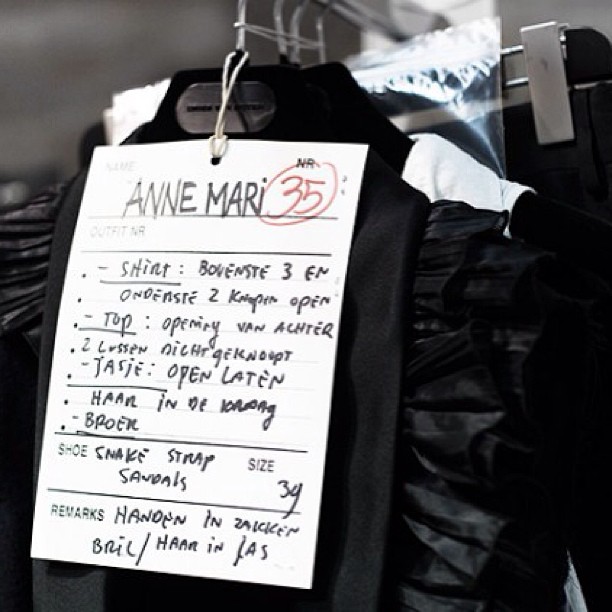 NAME NR
ANNE MARI 35
OUTFIT NR
- SHIRT: BOVENSTE 3 EN
ONDERSTE 2 KNOPEN OPEN
- TOP: OPENING VAN ACHTER
2 LUSSEN DICHTGEKNOOPT
- TASJE: OPEN LATEN
HAAR IN DE KRAAG
- BROEK
SHOE SNAKE STRAP SIZE
SANDALS 39
REMARKS HANDEN IN ZAKKEN
BRIL/HAAR IN JAS